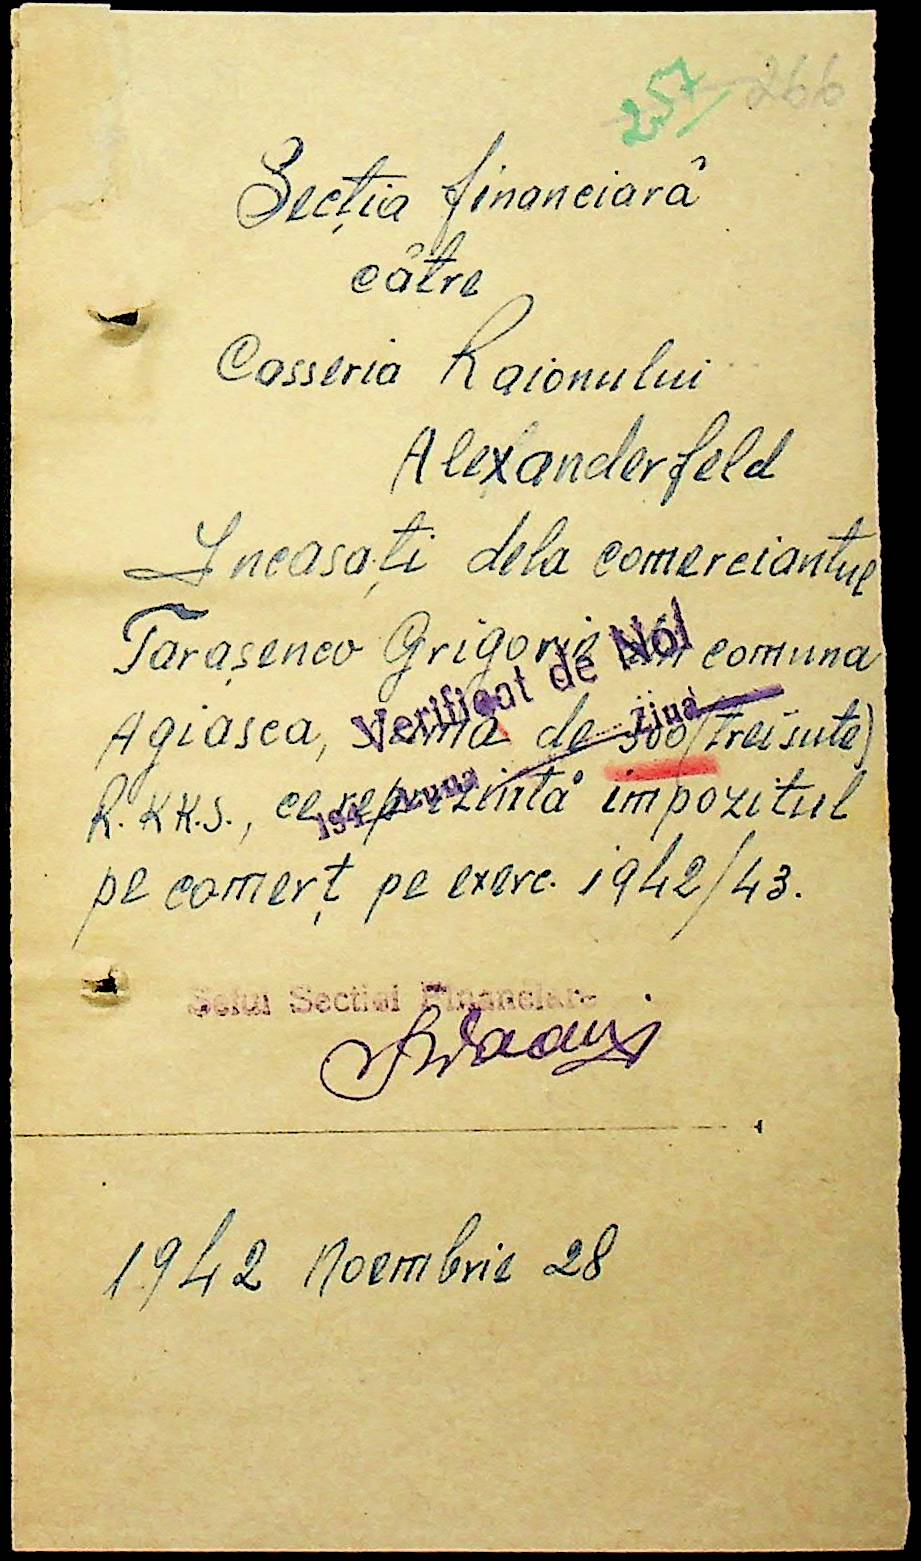 257 266
Secția financiară
către
Casseria Raionului
Alexanderfeld
Incasați dela comerciantul
Tarașenco Grigorie din comuna
Agiasca, suma de 300 (treisute)
R.KK.S., ce reprezintă impozitul
pe comerț pe exerc. 1942/43.
Verificat de Noi
194 Luna Ziua
Șeful Secției Financiare
1942 Noembrie 28